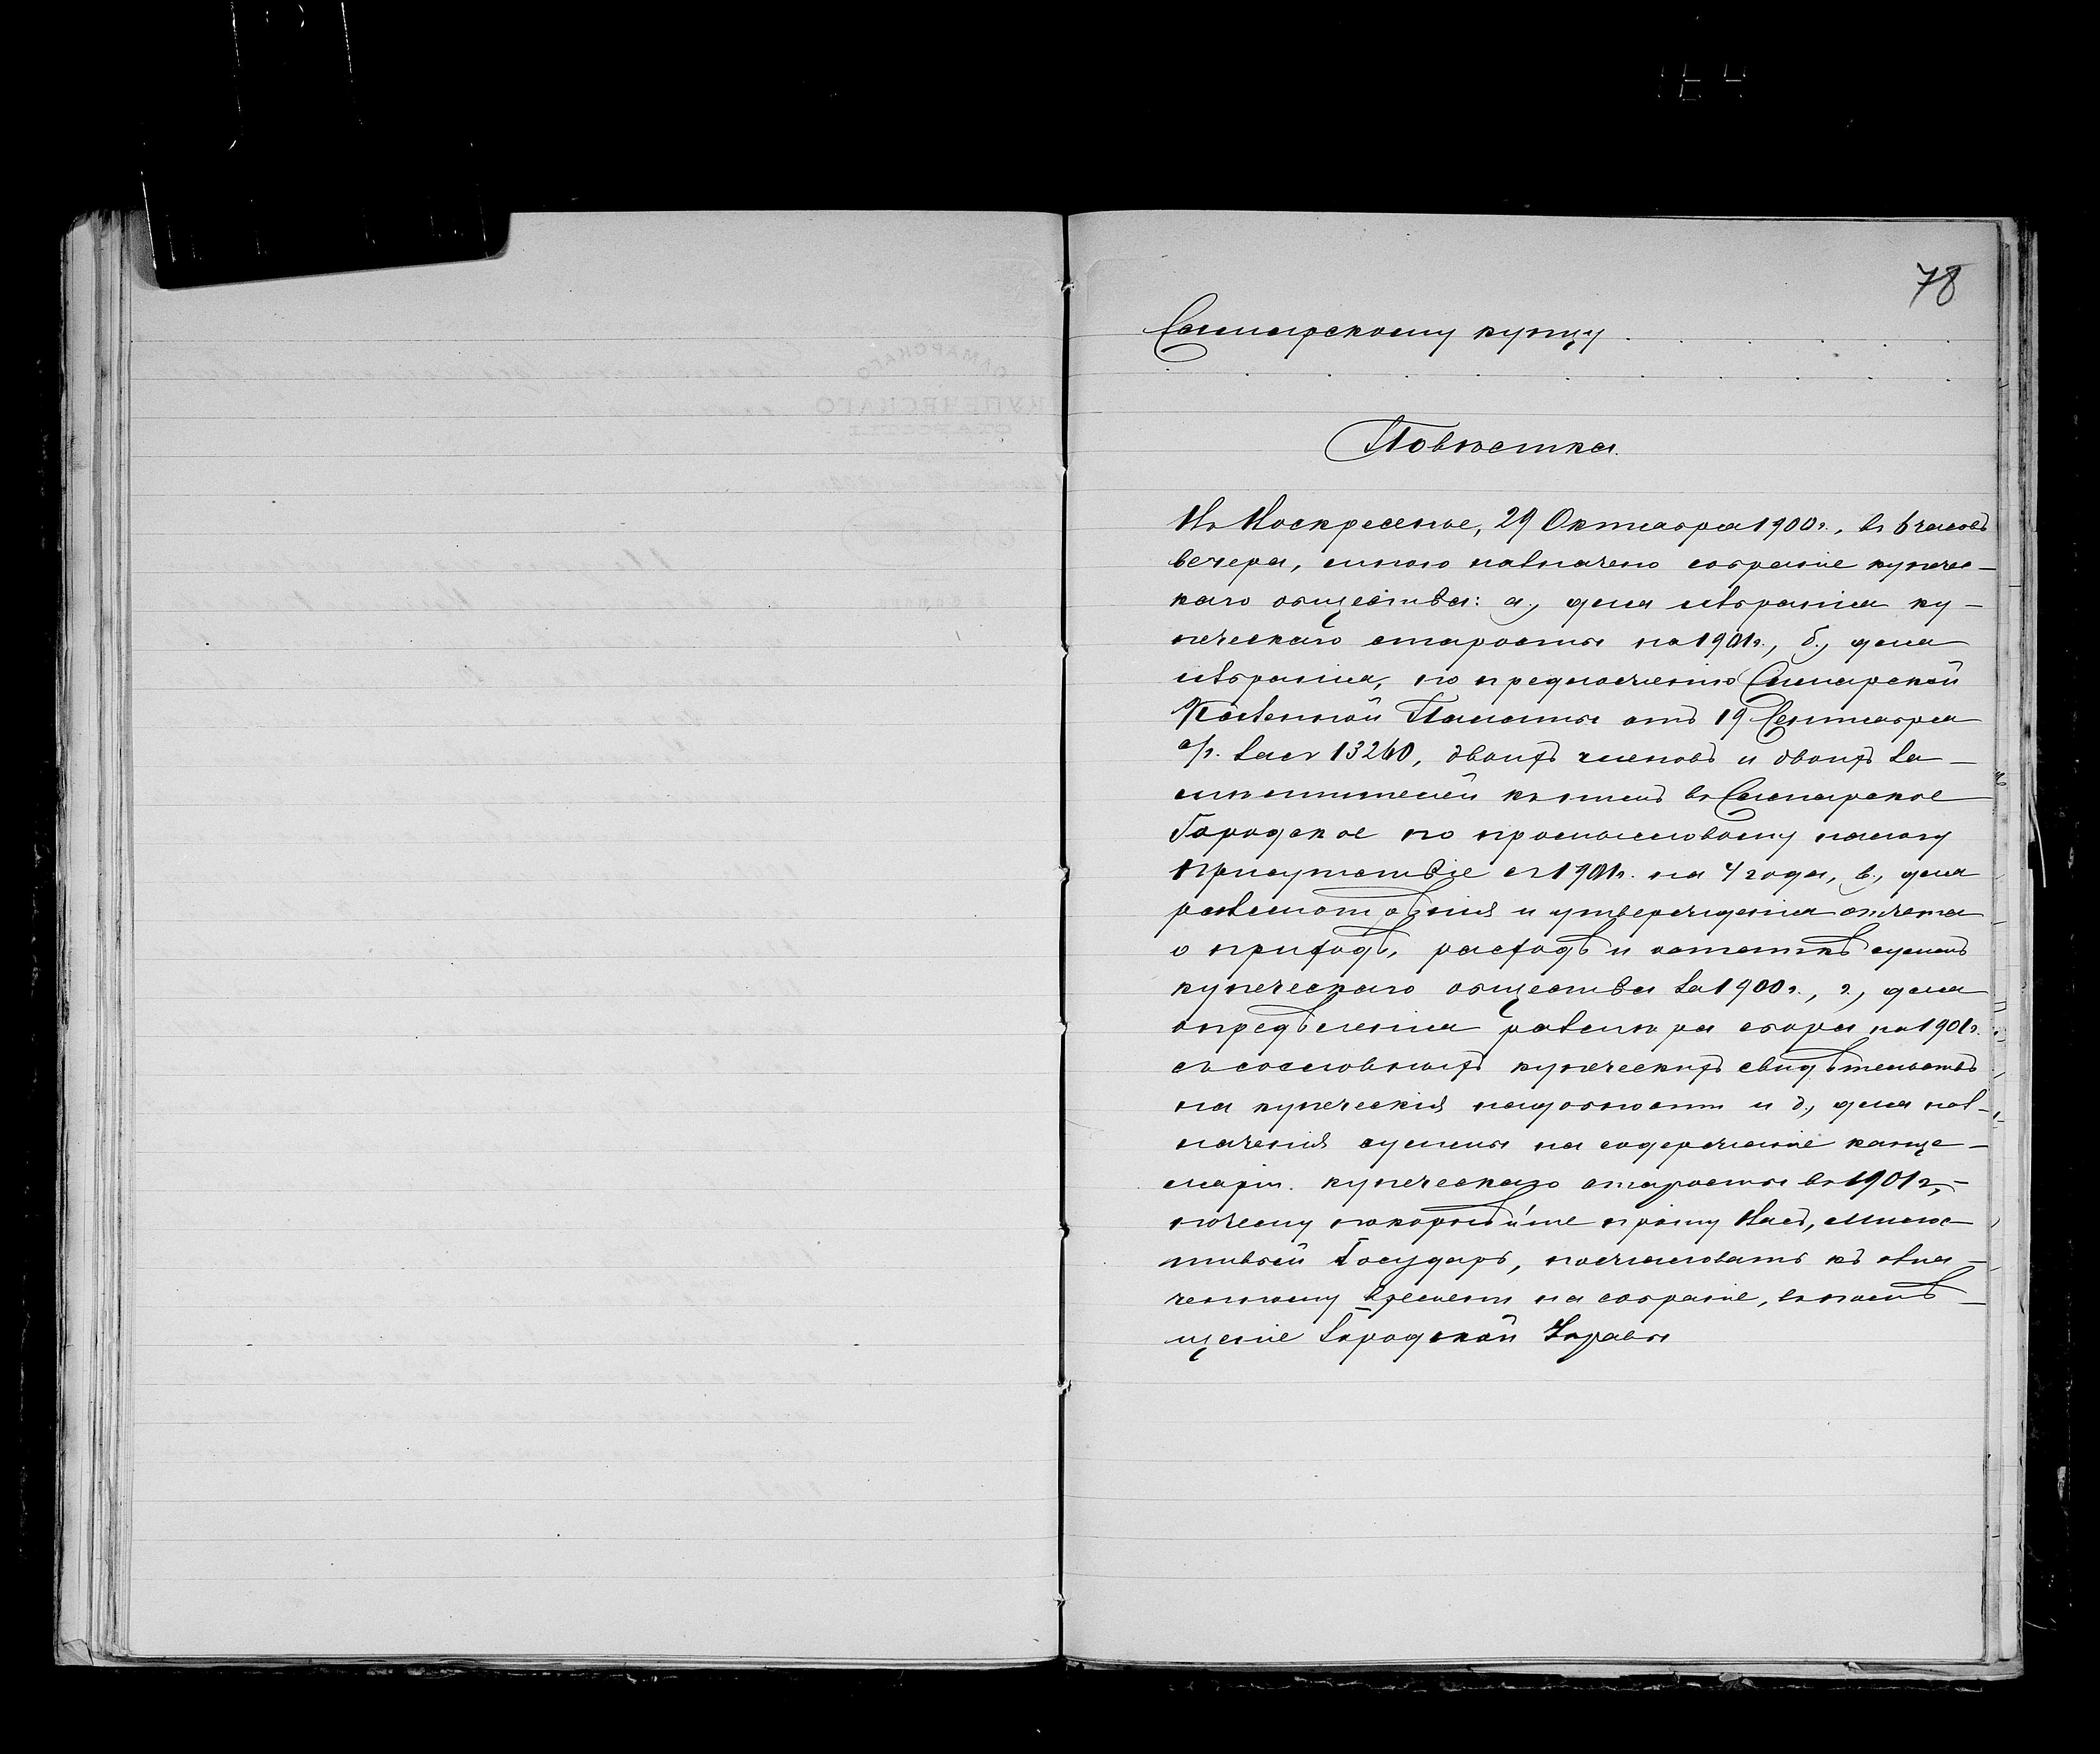 78
Самарскому купцу . . . . .
. . . . . . . . . .
Повѣстка.
Въ Воскресенье, 29 Октября 1900 г., въ 6 часовъ
вечера, мною назначено собраніе купечес-
каго общества: а, для избранія ку-
печескаго старосты на 1901 г., б, для
избранія, по предложенію Самарской
Казенной Палаты отъ 19 Сентября
с/г. за № 13240, двоихъ членовъ и двоихъ за-
мѣстителей къ нимъ въ Самарское
Городское по промысловому налогу
Присутствіе съ 1901 г. на 4 года, в, для
разсмотрѣнія и утвержденія отчета
о приходѣ, расходѣ и остаткѣ суммъ
купеческаго общества за 1900 г., г, для
опредѣленія размѣра сбора на 1901 г.
съ сословныхъ купеческихъ свидѣтельствъ
на купеческія надобности и д, для наз-
наченія суммы на содержаніе канце-
ляріи купеческаго старосты въ 1901 г.,-
почему покорнѣйше прошу Васъ, Милос-
тивый Государь, пожаловать къ озна-
ченному времени на собраніе, въ помѣ-
щеніе Городской Управы
САМАРСКАГО
КУПЕЧЕСКАГО
СТАРОСТЫ